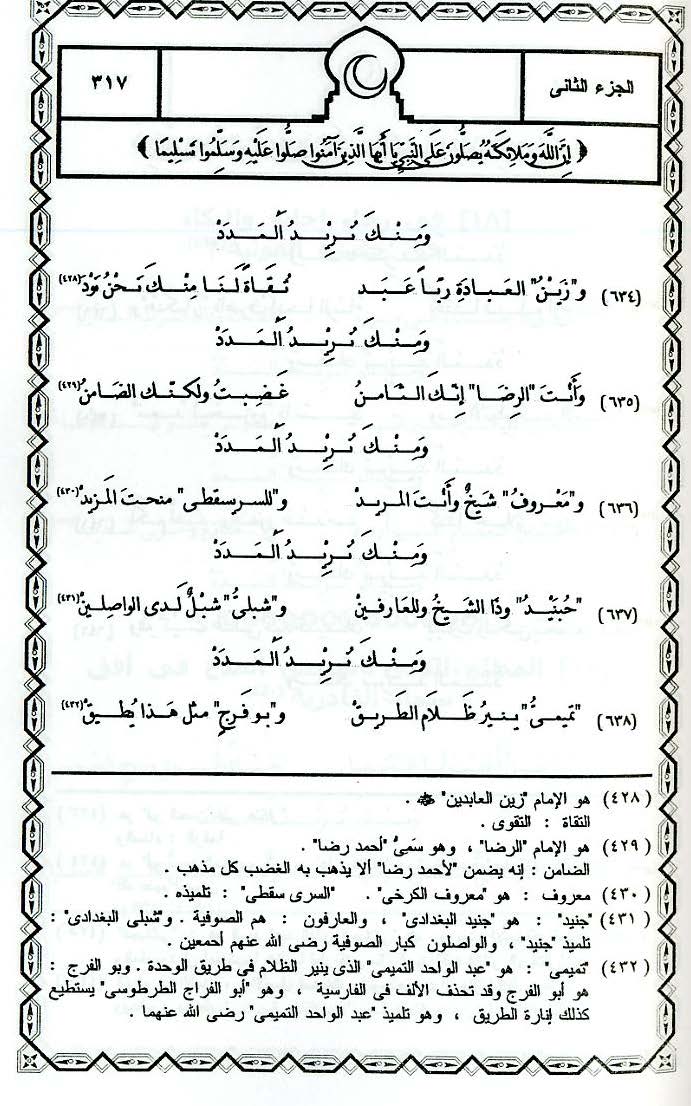 الجزء الثانى
٣١٧
﴿ إِنَّ اللَّهَ وَمَلائِكَتَهُ يُصَلُّونَ عَلَى النَّبِيِّ يَا أَيُّهَا الَّذِينَ آمَنُوا صَلُّوا عَلَيْهِ وَسَلِّمُوا تَسْلِيمًا ﴾
وَمِنْكَ نُرِيْدُ الْمَدَدْ
(٦٣٤) و"زَيْنُ" العَبادَةِ رَبّاً عَبَد تُقَاةً لَنَا مِنْكَ نَحْنُ نَوَدْ (٤٢٨)
وَمِنْكَ نُرِيْدُ الْمَدَدْ
(٦٣٥) وَأَنْتَ "الرِضَا" إِنَّكَ الثَّامنُ غَضِبْتُ ولكنّك الضَامنُ (٤٢٩)
وَمِنْكَ نُرِيْدُ الْمَدَدْ
(٦٣٦) و"مَعْروفُ" شَيخٌ وأَنْتَ المريدْ و"للسرسقطى" منحتَ المَزيدْ (٤٣٠)
وَمِنْكَ نُرِيْدُ الْمَدَدْ
(٦٣٧) "جُنَيْدُ" وذَا الشَيخُ وللعَارفينْ و"شبلىُّ" شبْلٌ لَدى الواصِلينْ (٤٣١)
وَمِنْكَ نُرِيْدُ الْمَدَدْ
(٦٣٨) "تميمىُّ" ينيرُ ظَلَامَ الطَرِيقْ و"بو فَرجٍ" مثل هَذا يُطيقْ (٤٣٢)
(٤٢٨) هو الإمام "زين العابدين" .
التقاة : التقوى .
(٤٢٩) هو الإمام "الرضا" ، وهو سَمىُّ "أحمد رضا" .
الضامن : إنه يضمن "لأحمد رضا" ألا يذهب به الغضب كل مذهب .
(٤٣٠) معروف : هو "معروف الكرخى" . "السرى سقطى" : تلميذه .
(٤٣١) "جنيد" : هو "جنيد البغدادى" ، والعارفون : هم الصوفية . و"شبلى البغدادى" :
تلميذ "جنيد" ، والواصلون كبار الصوفية رضى الله عنهم أجمعين .
(٤٣٢) "تميمى" : هو "عبد الواحد التميمى" الذى ينير الظلام فى طريق الوحدة . وبو الفرج :
هو أبو الفرج وقد تحذف الألف فى الفارسية ، وهو "أبو الفراج الطرطوسى" يستطيع
كذلك إنارة الطريق ، وهو تلميذ "عبد الواحد التميمى" رضى الله عنهما .